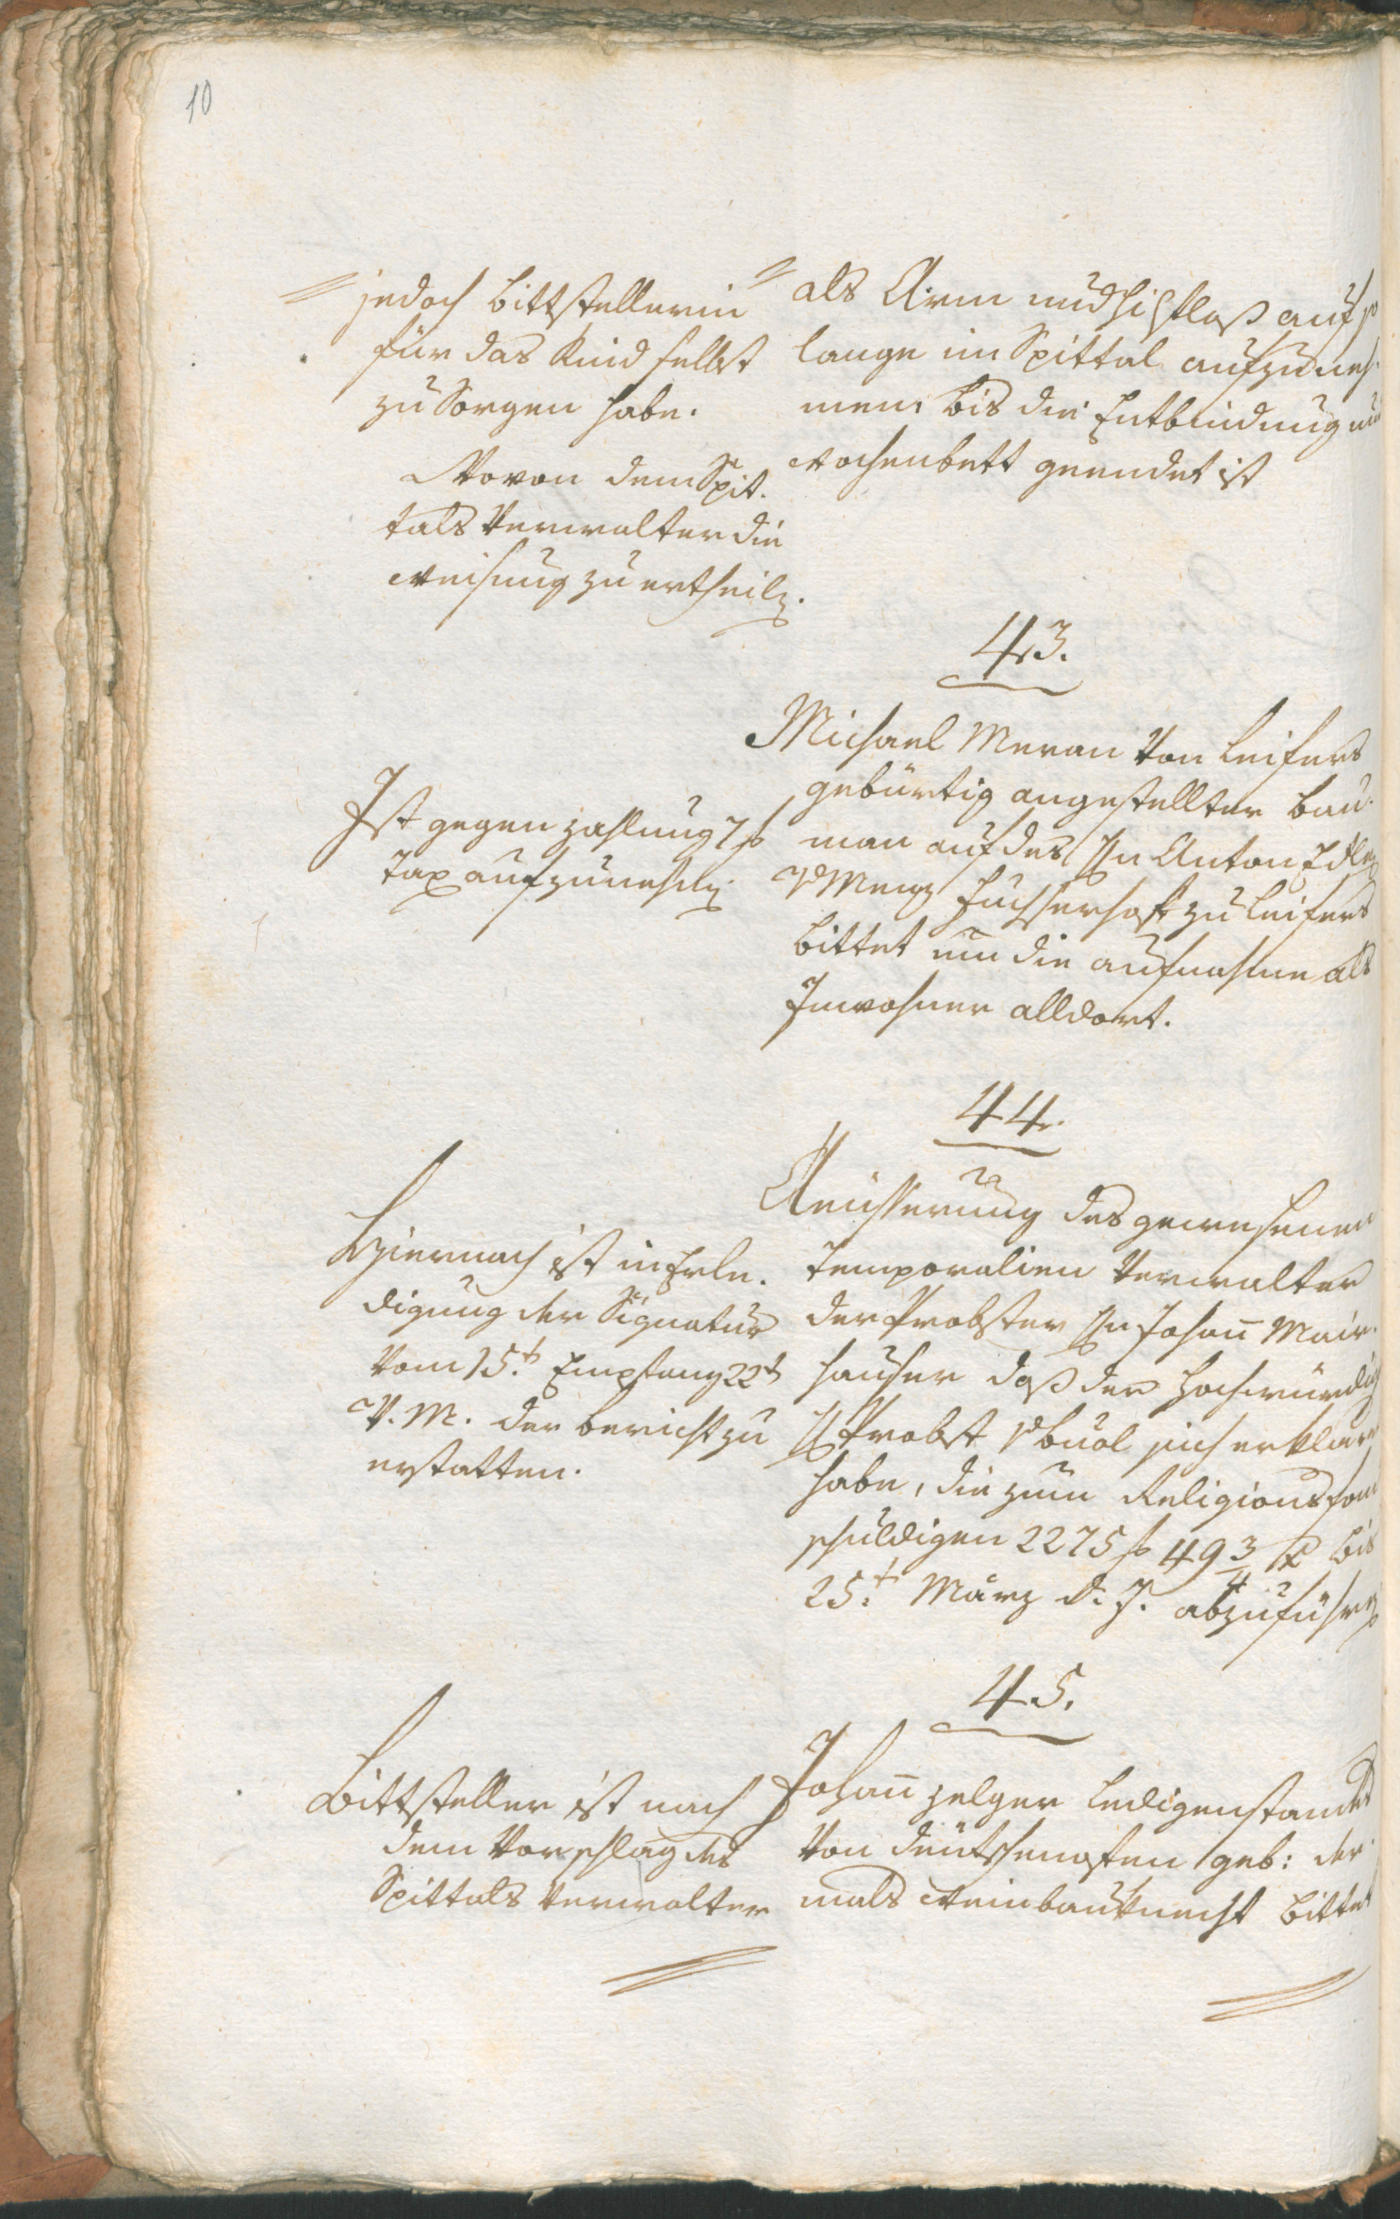 10
jedoch Bittstellerin
für das Kind selbst
zu Sorgen habe.
Wovon dem Spit.
tals Verwalter die
Weisung zu ertheilen.
als Arm und hilflos auf so
lange im Spittal aufzuneh.
men, bis die Entbindung und
Wochenbett geendet ist
43.
Ist gegen Zahlung 7 f
Tax aufzunehmen.
Michael Meran Von Leifers
gebürtig angestellter Bau.
man auf des Hn Anton Edlen
v Menz Fuchserhof zu Leifers
bittet um die aufnahme als
Inwohner alldort.
44.
Hiernach ist in Erle.
digung der Signatur
Vom 15.t Empfang 22t
V. M. der Bericht zu
erstatten.
Aeusserung des gewesenen
Temporalien Verwalter
der Probstey Hn Johann Mair.
hauser daß der Hochwürdig
H Probst v Buol sich erklärt
habe, die zum Religionsfon
schuldigen 2275 f 49 3/4 x bis
25.t März d. J. abzuführen
45.
Bittsteller ist nach
dem Vorschlag des
Spittals Verwalter
Johann Zelger Ledigenstandes
Von Deutschenofen geb: der.
mals Weinbauknecht bittet